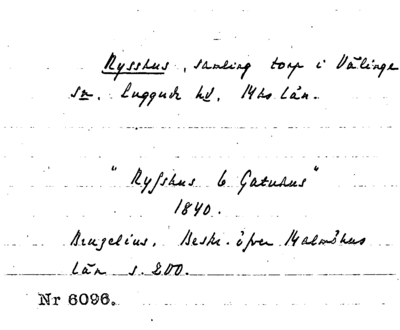 Rysshus, samling torp i Välinge
sn, Luggude hd, Mhs län.
"Ryſshus 6 Gatuhus"
1840.
Brugelius, Beskr. öfver Malmöhus
län s. 200.
Nr 6096.